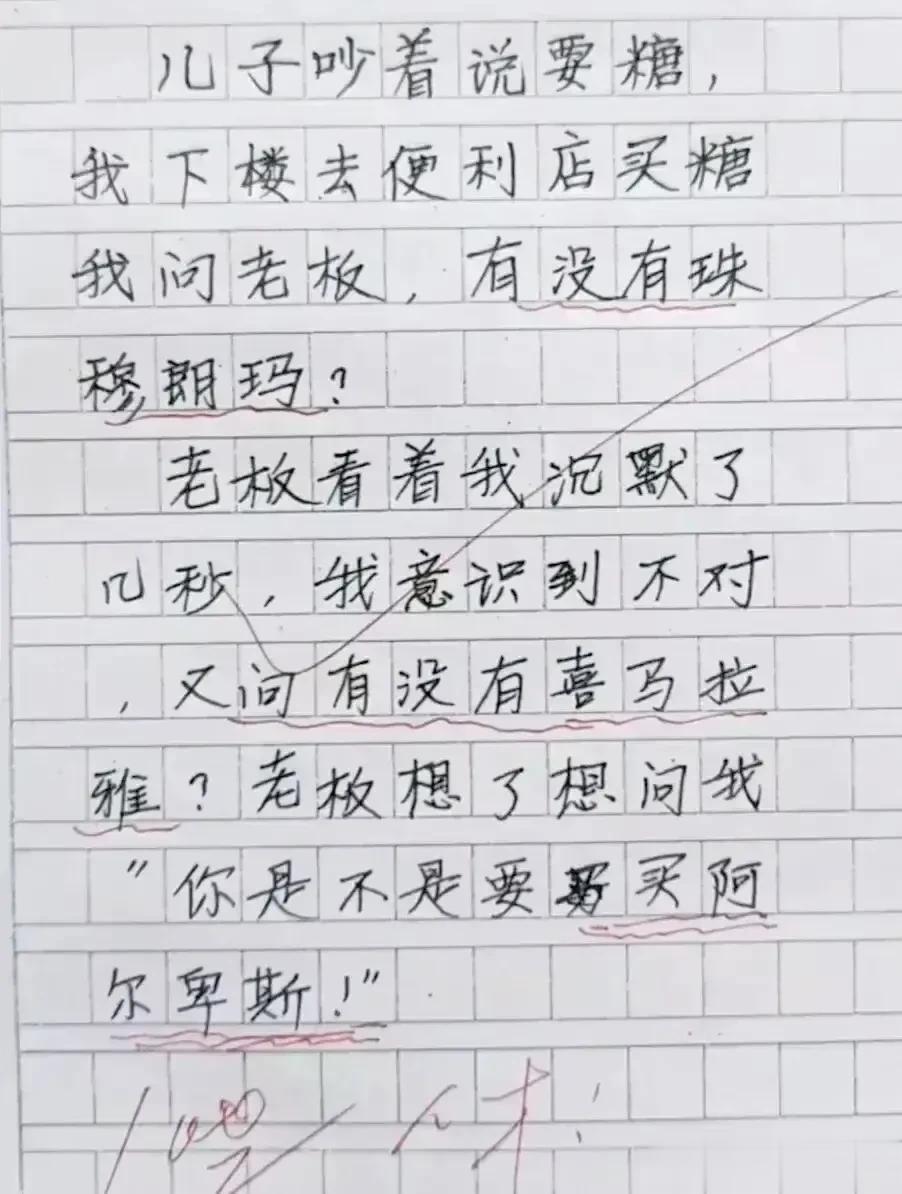 儿子吵着说要糖，
我下楼去便利店买糖
我问老板，有没有珠
穆朗玛？
老板看着我沉默了
几秒，我意识到不对
，又问有没有喜马拉
雅？老板想了想问我
"你是不是要买阿
尔卑斯！"
人才！